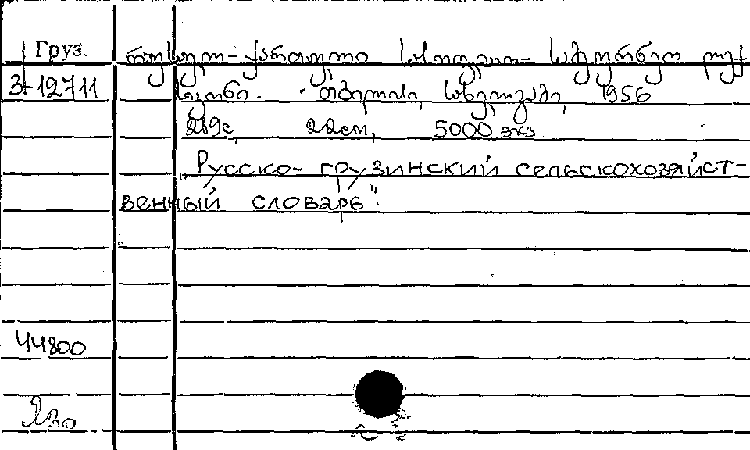 Груз.
რუსულ-ქართული სასოფლო-სამეურნეო ლექ
3-12711
სიკონი. თბილისი, სახელგამი, 1956
219с, 22см, 5000 экз
"Русско-грузинский сельскохозяйст-
венный словарь".
44800